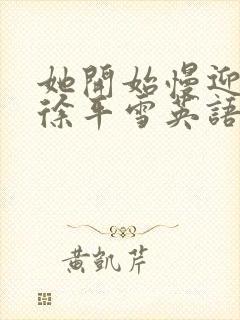 她開始慢迎
徐平雪英語
黃凱芹